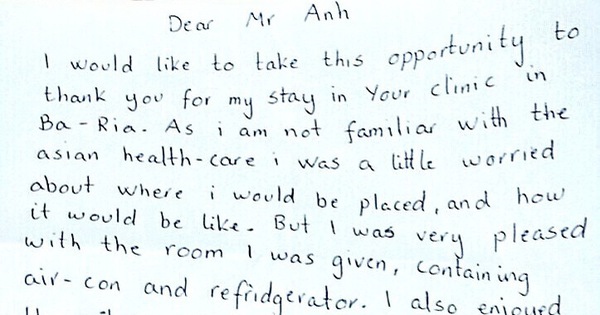 Dear Mr Anh
I would like to take this opportunity to
thank you for my stay in Your clinic in
Ba-Ria. As i am not familiar with the
asian health-care i was a little worried
about where i would be placed, and how
it would be like. But I was very pleased
with the room I was given, containing
air-con and refridgerator. I also enjoyed